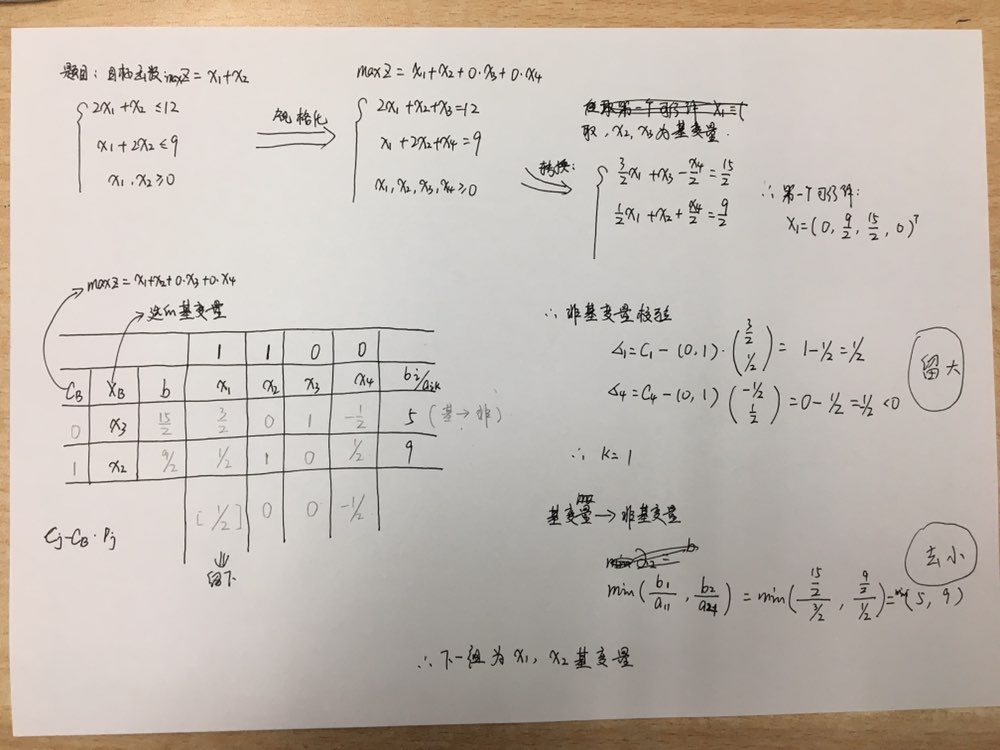 题目：目标函数maxZ = x₁+x₂
2x₁+x₂≤12
x₁+2x₂≤9
x₁,x₂≥0
规格化
maxZ = x₁+x₂+0·x₃+0·x₄
2x₁+x₂+x₃=12
x₁+2x₂+x₄=9
x₁,x₂,x₃,x₄≥0
取,x₂,x₃为基变量.
转换:
3/2x₁+x₃-x₄/2=15/2
1/2x₁+x₂+x₄/2=9/2
∴第一个可行解:
X₁=(0, 9/2, 15/2, 0)ᵀ
maxZ=x₁+x₂+0·x₃+0·x₄
选的基变量
1 1 0 0
C_B X_B b x₁ x₂ x₃ x₄ bᵢ/aᵢₖ
0 x₃ 15/2 3/2 0 1 -1/2 5 (基→非)
1 x₂ 9/2 1/2 1 0 1/2 9
[1/2] 0 0 -1/2
Cj-C_B·Pj
留下
∴非基变量校验
Δ₁=C₁-(0,1)·(3/2 1/2)= 1-1/2=1/2
Δ₄=C₄-(0,1)(-1/2 1/2)=0-1/2=1/2<0
留大
∴ K=1
基变量→非基变量
min(b₁/a₁₁, b₂/a₂₄) = min(15/2/3/2, 9/2/1/2)=min(5, 9)
去小
∴下一组为x₁, x₂基变量